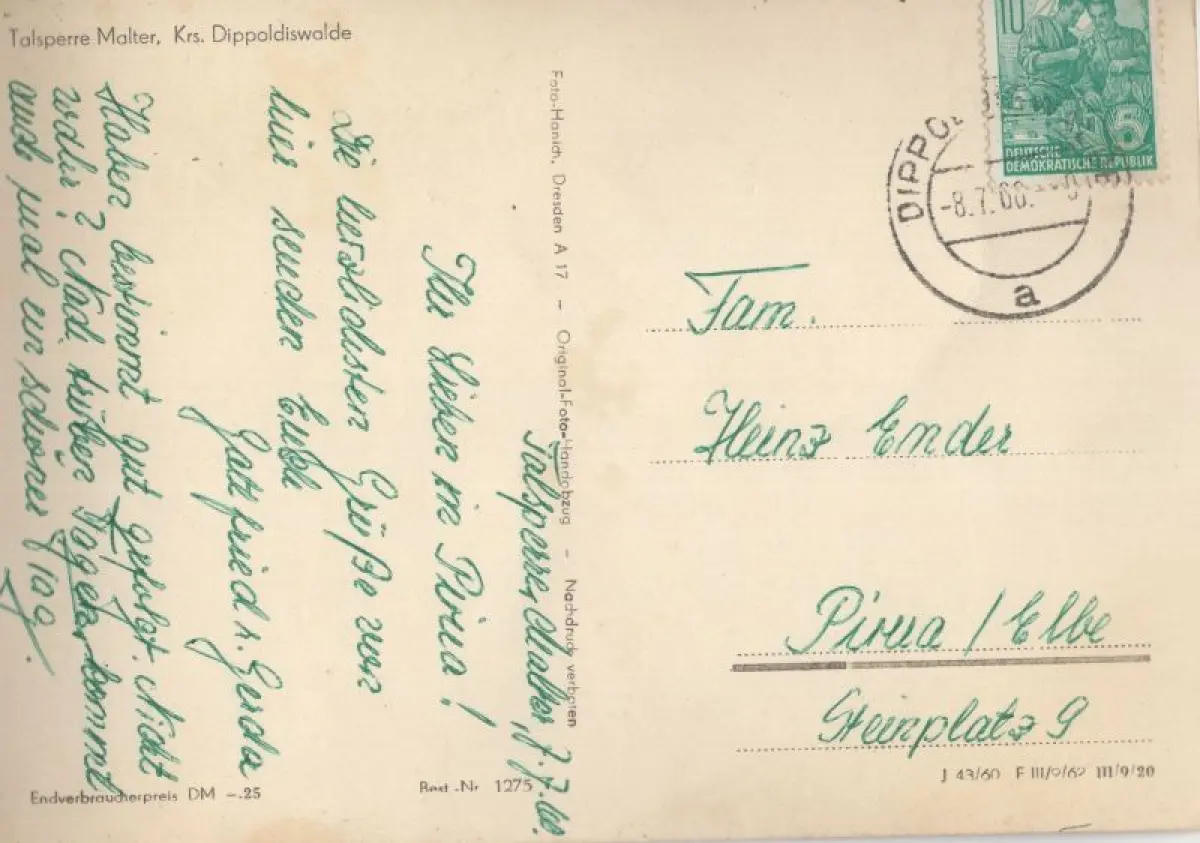 Talsperre Malter, Krs. Dippoldiswalde
Talsperre Malter, 7.7.60.
Ihr Lieben in Pirna!
Die herzlichsten Grüße von
hier senden Euch
Gottfried u. Gerda
Haben bestimmt gut gefolgt. Nicht
wahr? Nach trüben Tagen kommt
auch mal ein schöner Tag.
Foto-Hanich, Dresden A 17 – Original-Foto-Handabzug – Nachdruck verboten
Endverbraucherpreis DM –.25
Best.-Nr. 1275
10
5
DEUTSCHE
DEMOKRATISCHE REPUBLIK
DIPPOL
-8.7.60.
a
Fam.
Heinz Ender
Pirna / Elbe
Steinplatz 9
J 43/60 F III/9/62 III/9/20